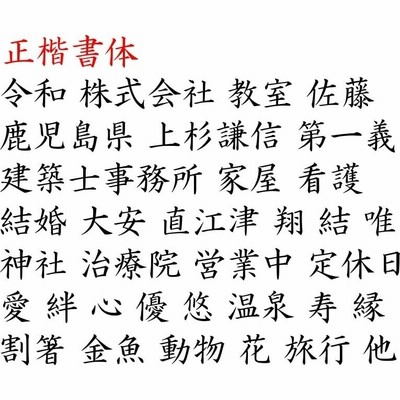 正楷書体
令和 株式会社 教室 佐藤
鹿児島県 上杉謙信 第一義
建築士事務所 家屋 看護
結婚 大安 直江津 翔 結 唯
神社 治療院 営業中 定休日
愛 絆 心 優 悠 温泉 寿 縁
割箸 金魚 動物 花 旅行 他